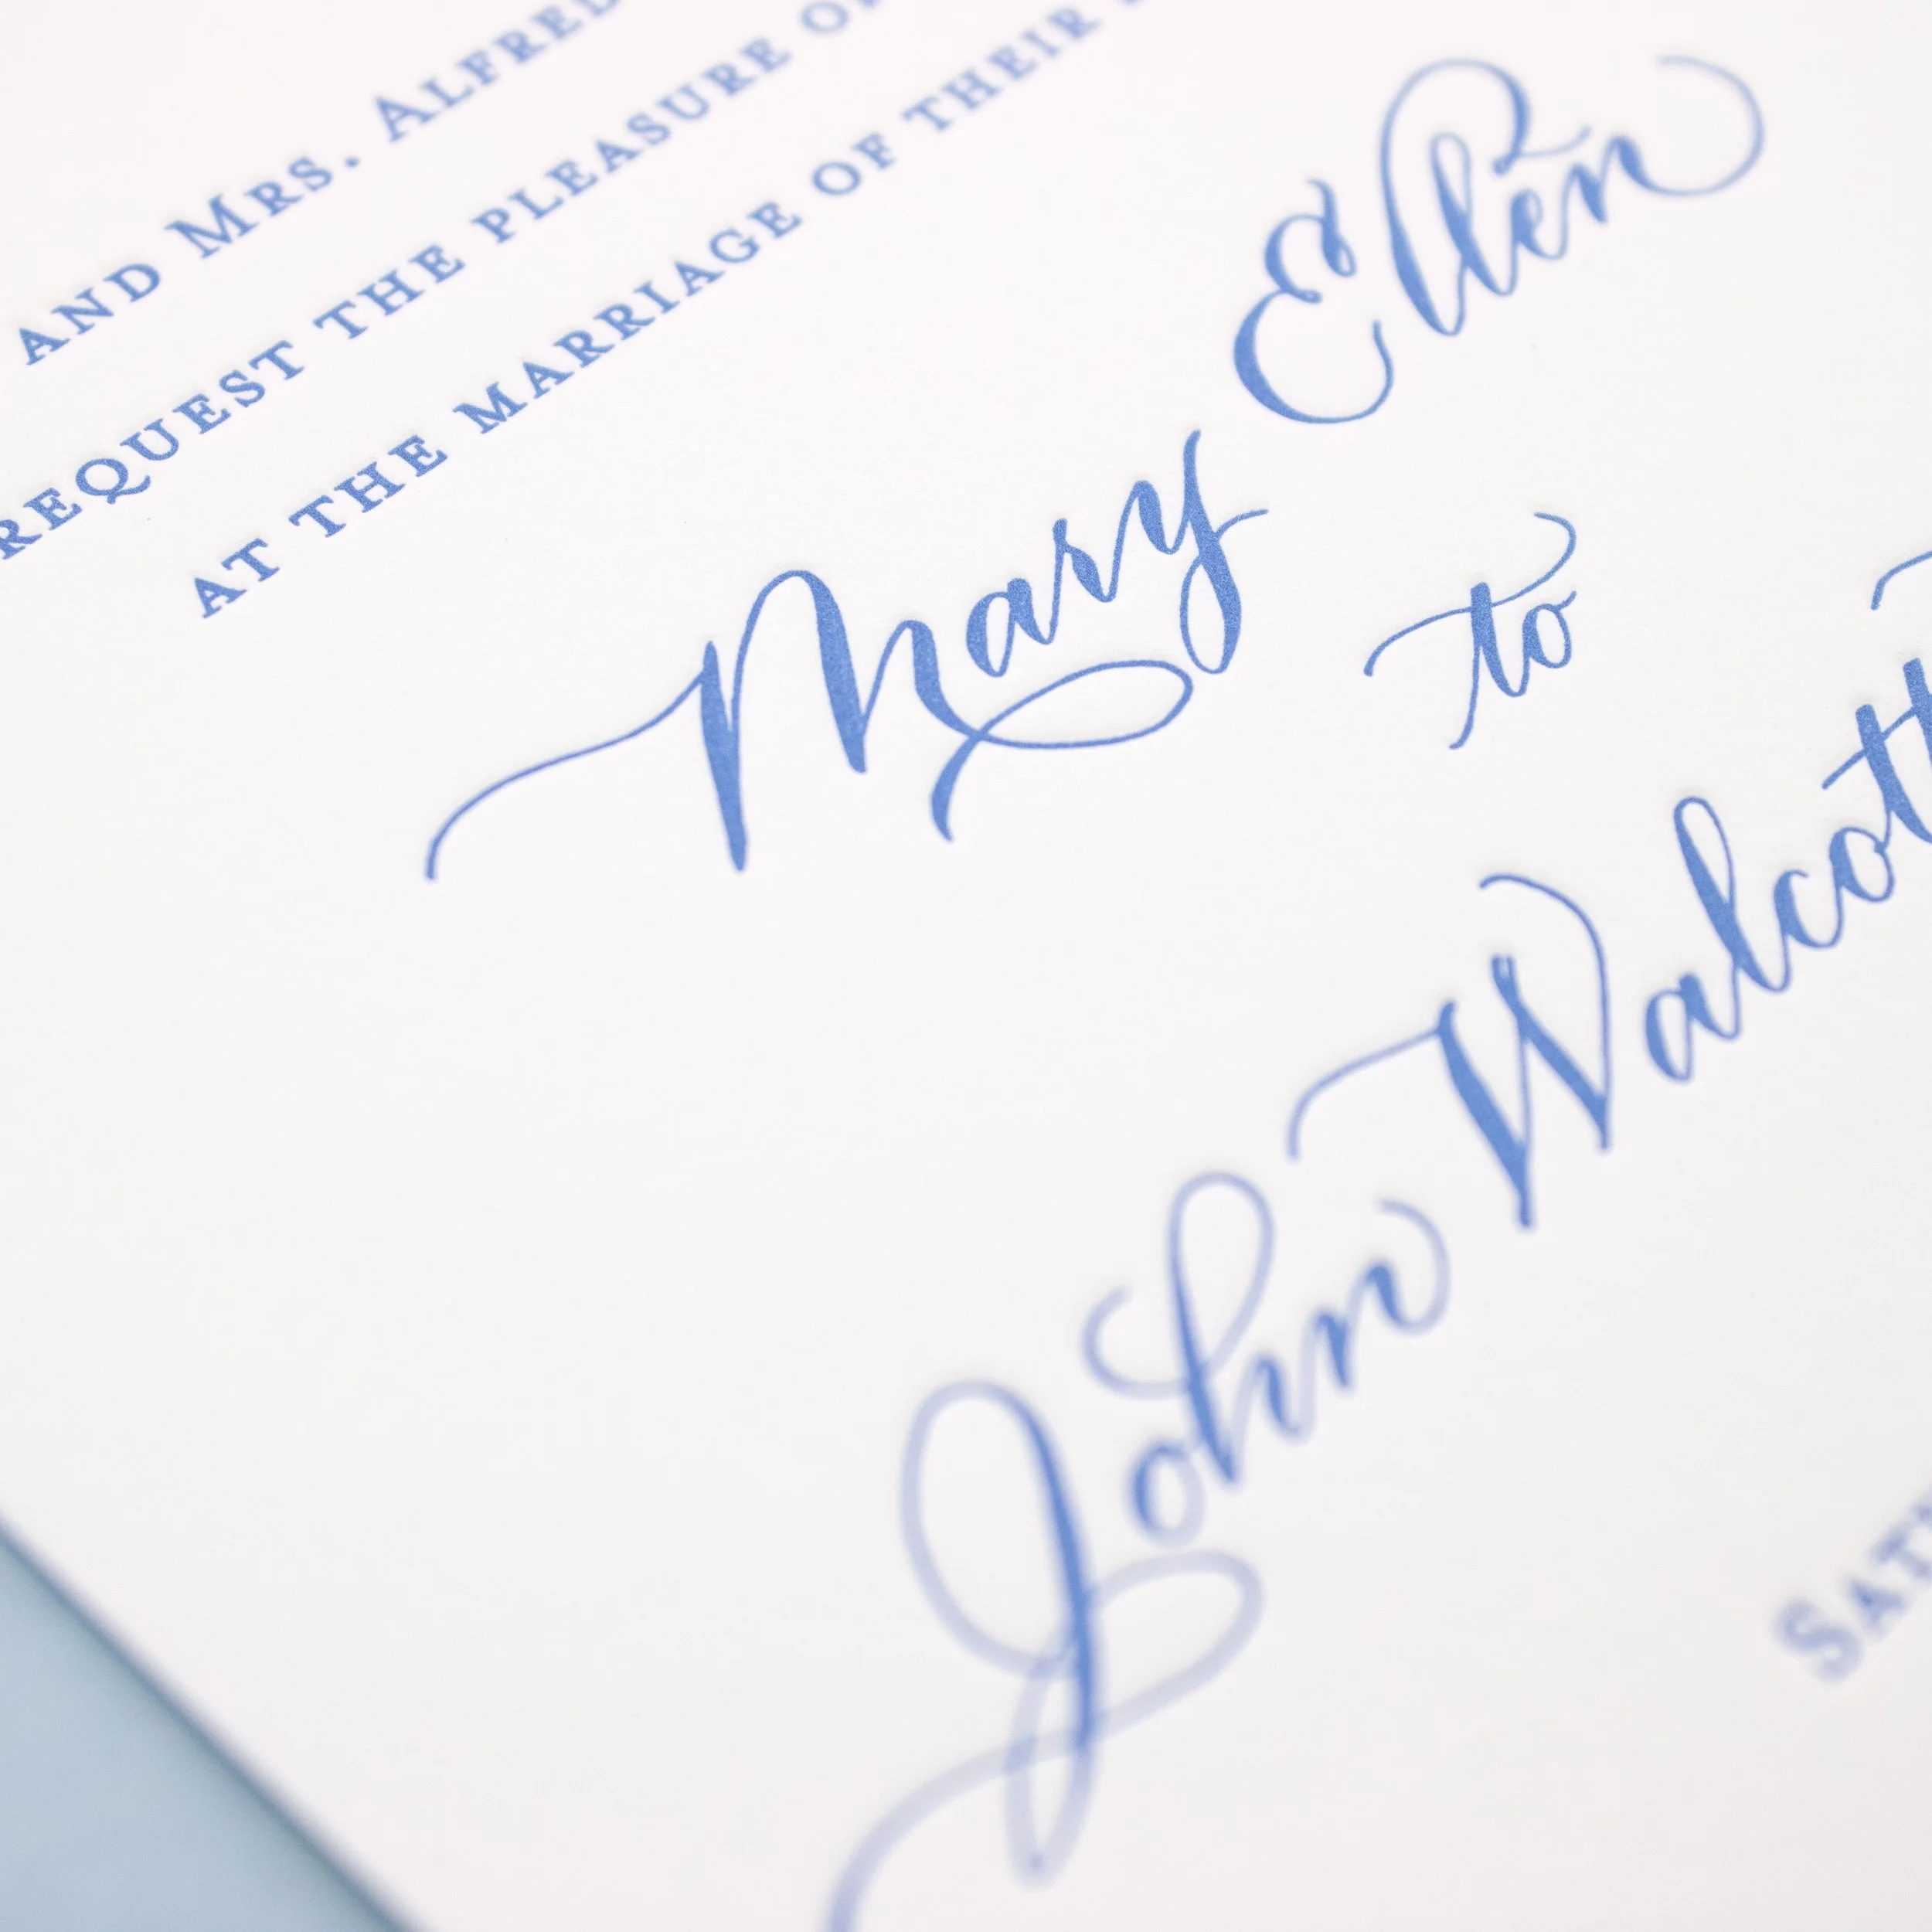 AND MRS. ALFRED
REQUEST THE PLEASURE OF
AT THE MARRIAGE OF THEIR
Mary Ellen
to
John Walcott